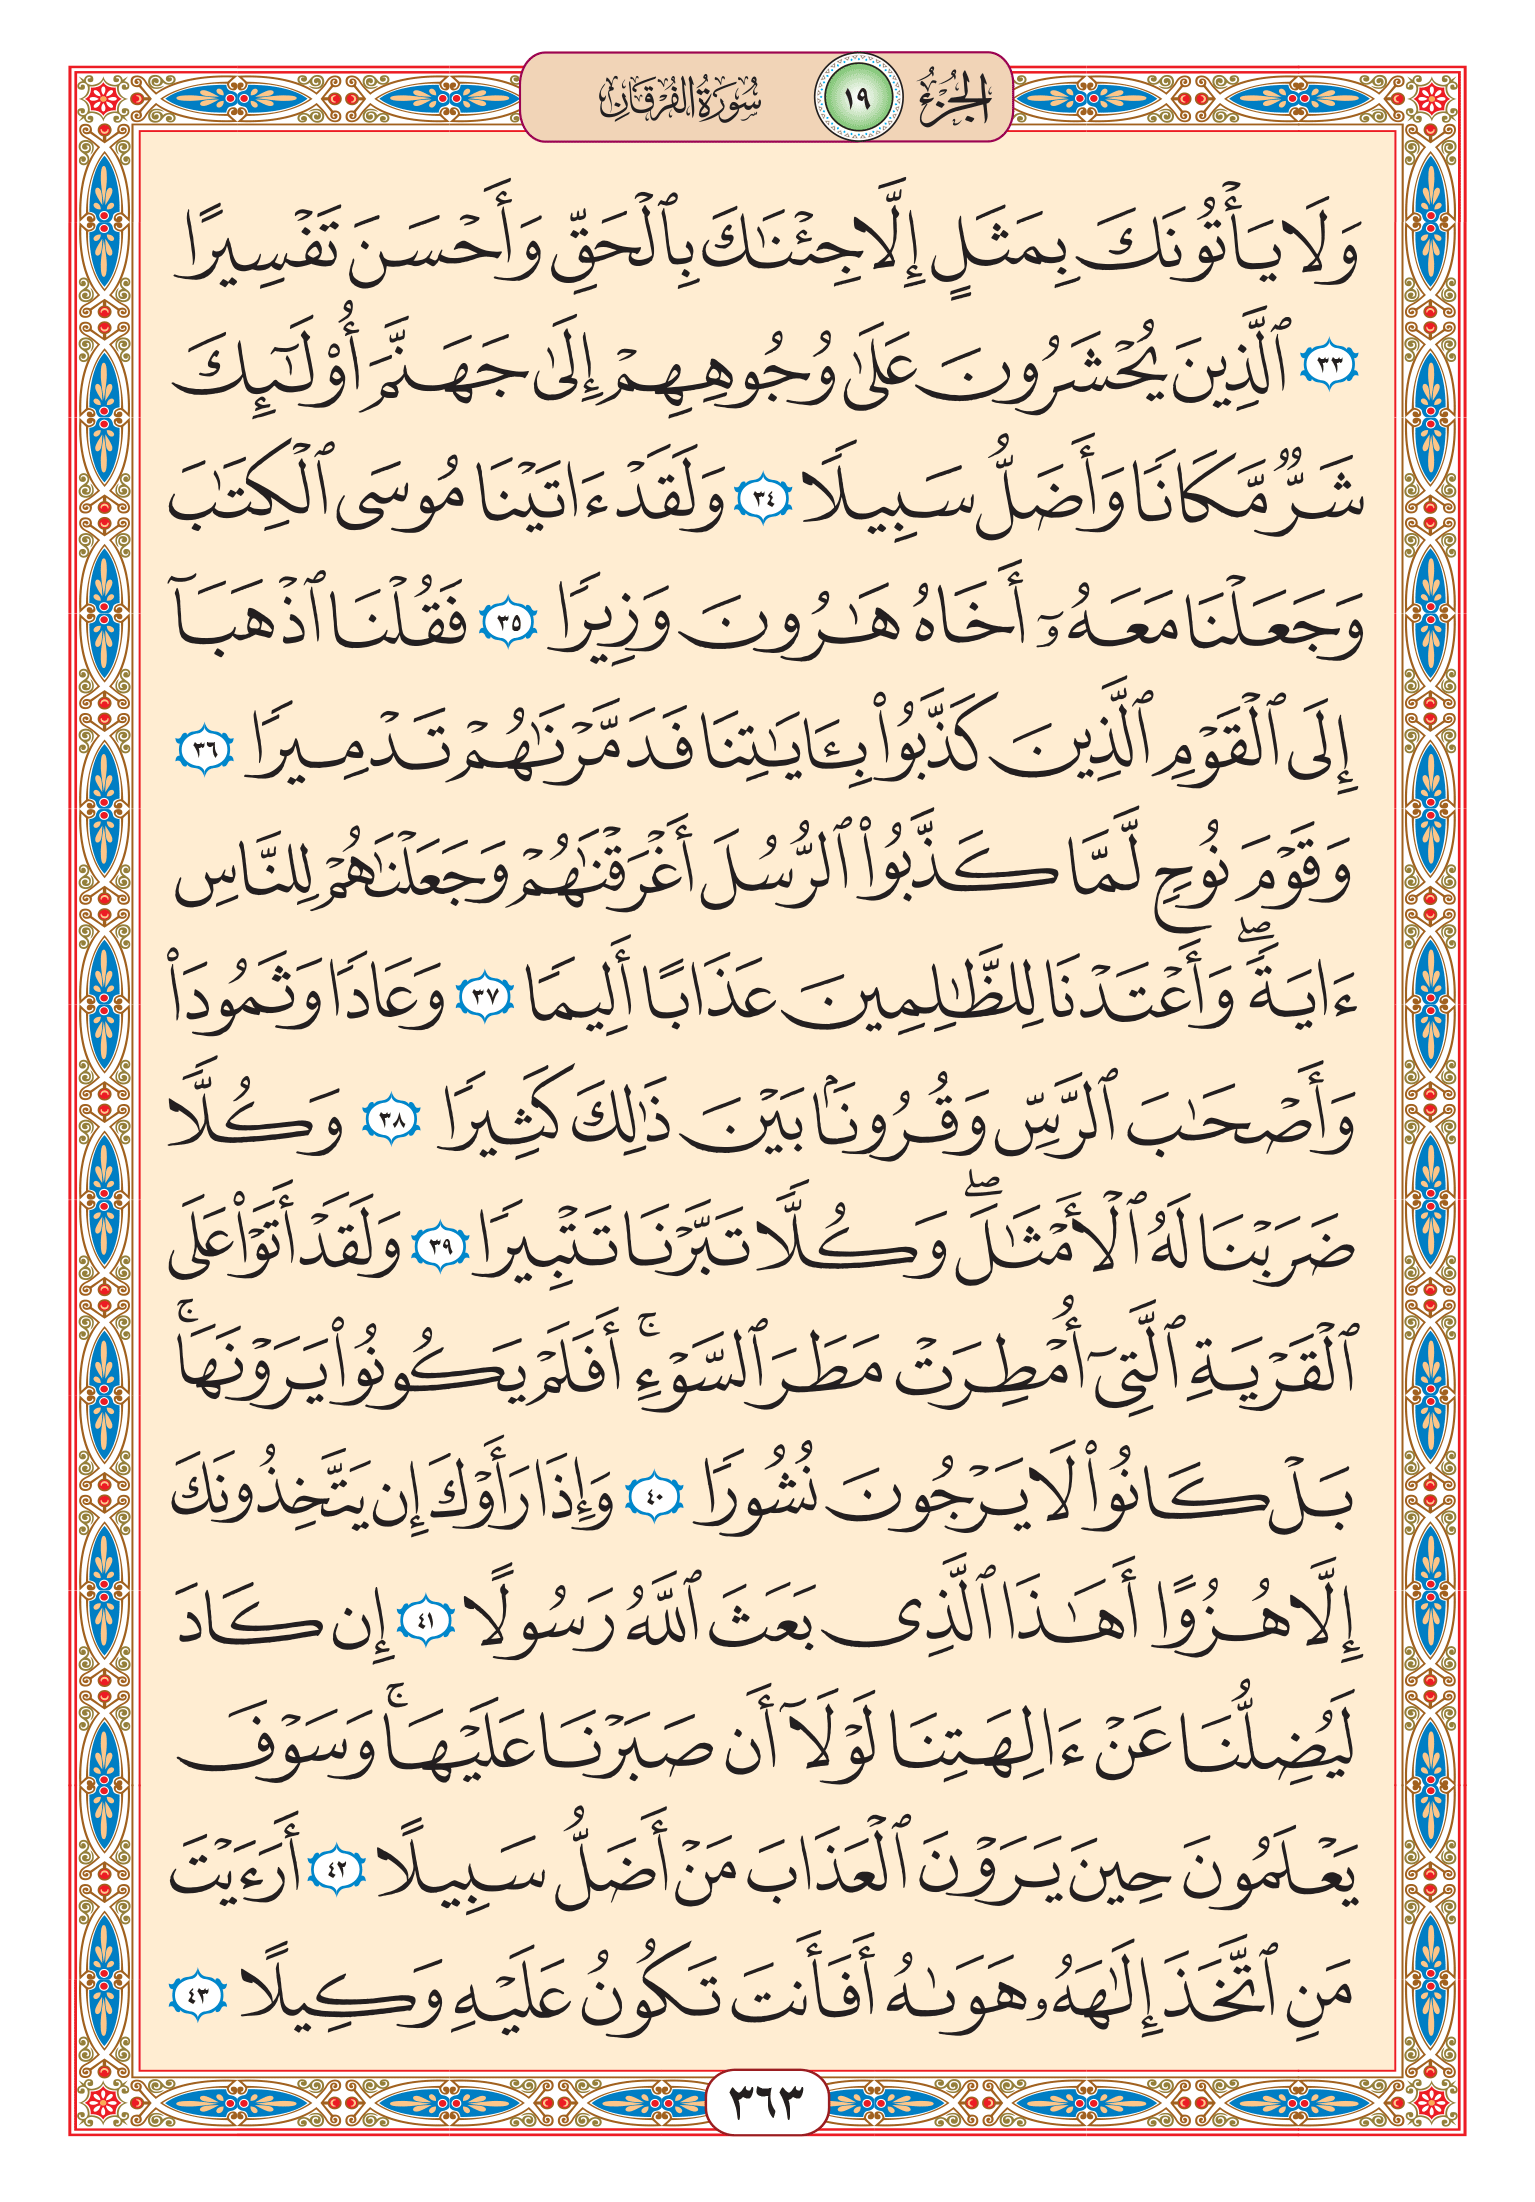 الجزء ١٩ سورة الفرقان
وَلَا يَأْتُونَكَ بِمَثَلٍ إِلَّا جِئْنَٰكَ بِٱلْحَقِّ وَأَحْسَنَ تَفْسِيرًا
٣٣ ٱلَّذِينَ يُحْشَرُونَ عَلَىٰ وُجُوهِهِمْ إِلَىٰ جَهَنَّمَ أُو۟لَٰٓئِكَ
شَرٌّ مَّكَانًا وَأَضَلُّ سَبِيلًا ٣٤ وَلَقَدْ ءَاتَيْنَا مُوسَى ٱلْكِتَٰبَ
وَجَعَلْنَا مَعَهُۥٓ أَخَاهُ هَٰرُونَ وَزِيرًا ٣٥ فَقُلْنَا ٱذْهَبَآ
إِلَى ٱلْقَوْمِ ٱلَّذِينَ كَذَّبُوا۟ بِـَٔايَٰتِنَا فَدَمَّرْنَٰهُمْ تَدْمِيرًا ٣٦
وَقَوْمَ نُوحٍ لَّمَّا كَذَّبُوا۟ ٱلرُّسُلَ أَغْرَقْنَٰهُمْ وَجَعَلْنَٰهُمْ لِلنَّاسِ
ءَايَةً ۖ وَأَعْتَدْنَا لِلظَّٰلِمِينَ عَذَابًا أَلِيمًا ٣٧ وَعَادًا وَثَمُودَا۟
وَأَصْحَٰبَ ٱلرَّسِّ وَقُرُونًۢا بَيْنَ ذَٰلِكَ كَثِيرًا ٣٨ وَكُلًّا
ضَرَبْنَا لَهُ ٱلْأَمْثَٰلَ ۖ وَكُلًّا تَبَّرْنَا تَتْبِيرًا ٣٩ وَلَقَدْ أَتَوْا۟ عَلَى
ٱلْقَرْيَةِ ٱلَّتِىٓ أُمْطِرَتْ مَطَرَ ٱلسَّوْءِ ۚ أَفَلَمْ يَكُونُوا۟ يَرَوْنَهَا ۚ
بَلْ كَانُوا۟ لَا يَرْجُونَ نُشُورًا ٤٠ وَإِذَا رَأَوْكَ إِن يَتَّخِذُونَكَ
إِلَّا هُزُوًا أَهَٰذَا ٱلَّذِى بَعَثَ ٱللَّهُ رَسُولًا ٤١ إِن كَادَ
لَيُضِلُّنَا عَنْ ءَالِهَتِنَا لَوْلَآ أَن صَبَرْنَا عَلَيْهَا ۚ وَسَوْفَ
يَعْلَمُونَ حِينَ يَرَوْنَ ٱلْعَذَابَ مَنْ أَضَلُّ سَبِيلًا ٤٢ أَرَءَيْتَ
مَنِ ٱتَّخَذَ إِلَٰهَهُۥ هَوَىٰهُ أَفَأَنتَ تَكُونُ عَلَيْهِ وَكِيلًا ٤٣
٣٦٣